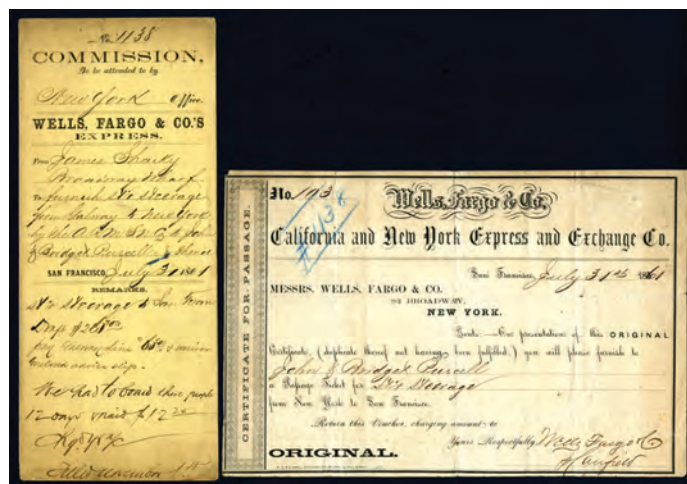 No. 1138
COMMISSION,
To be attended to by
New York Office.
WELLS, FARGO & CO.'S
EXPRESS.
From James Sharky
Broadway Wharf
to furnish Str Steerage
from Galway to New York
by the
& Bridget Purcell & thence
SAN FRANCISCO, July 31 1861
REMARKS.
Str Steerage to San Fran
We had to board these people
12 days paid $12
CERTIFICATE FOR PASSAGE.
No. 193
#1138
Wells, Fargo & Co.
California and New York Express and Exchange Co.
San Francisco, July 31st 1861
MESSRS. WELLS, FARGO & CO.
82 BROADWAY,
NEW YORK.
Gents:—On presentation of this ORIGINAL
Certificate, (duplicate thereof not having been fulfilled,) you will please furnish to
John & Bridget Purcell
a Passage Ticket for Str Steerage
from New York to San Francisco.
Return this Voucher, charging amount to
Yours Respectfully, Wells Fargo & Co
ORIGINAL.